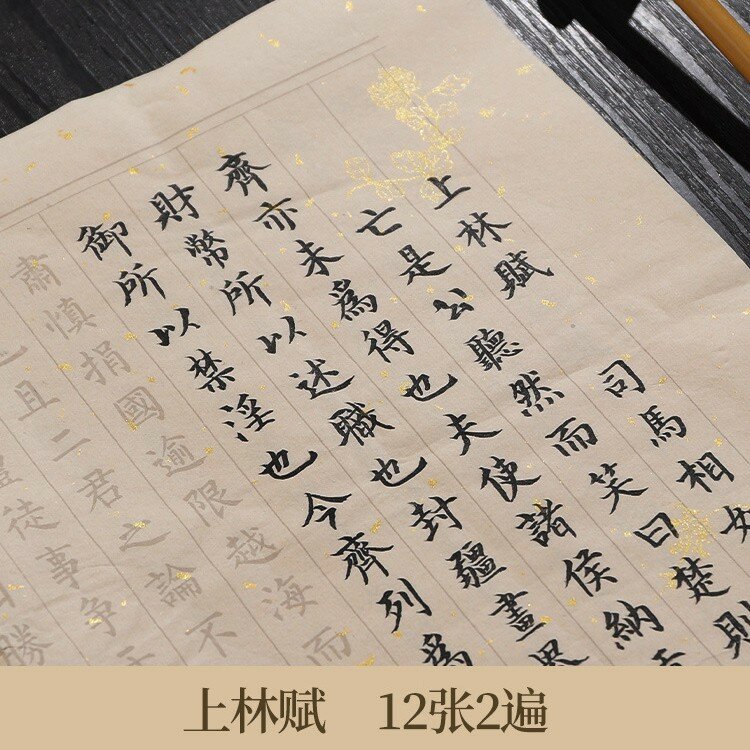 上林賦 司馬相如
亡是公聽然而笑曰楚則
齊亦未爲得也夫使諸侯納
財幣所以述職也封疆畫界
御所以禁淫也今齊列爲
肅慎捐國逾限越海而
且二君之論不
徒事爭
勝
上林赋 12张2遍